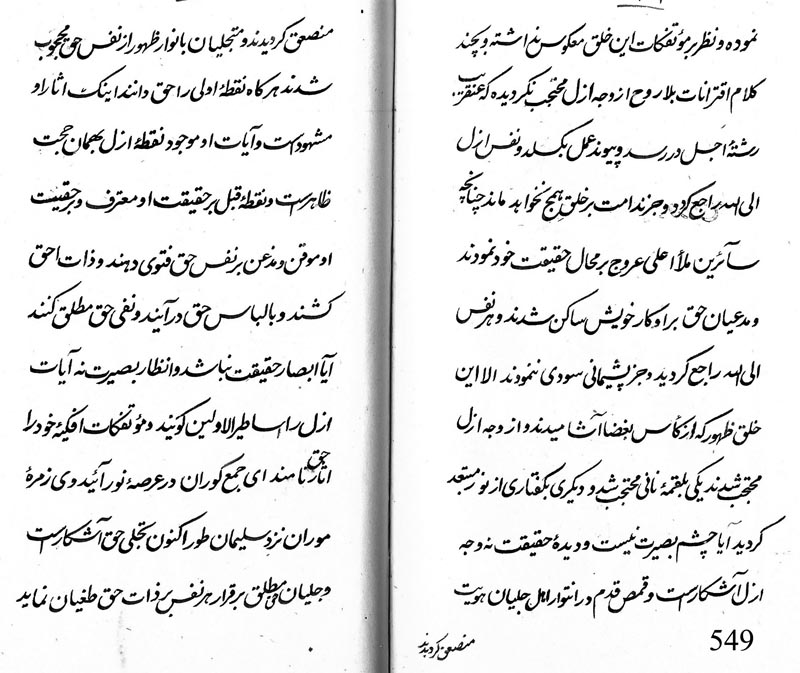 نموده و نظر بر مؤتفکات این خلق معکوس نداشته و بچند
کلام اقترانات بلا روح از وجه ازل محتجب نکردیده که عنقریب
رشتهٔ اجل در رسد و پیوند عمل بکسلد و نفس ازل
الی الله راجع کردد و جز ندامت بر خلق هیچ نخواهد ماند چنانچه
سآئرین ملأ اعلی عروج بر محال حقیقت خود نمودند
و مدعیان حق بر اوکار خویش ساکن شدند و هر نفس
الی الله راجع کردید و جز پشیمانی سودی ننمودند الا این
خلق ظهور که از کأس بغضا آشامیدند و از وجه ازل
محتجب شدند یکی بلقمهٔ نانی محتجب شد و دیکری بکفتاری از نور مبتعد
کردید آیا چشم بصیرت نیست و دیدهٔ حقیقت نه وجه
ازل آشکار است و قمص قدم در انتوار اهل جلیان هویت
549
منصعق کردیدند
منصعق کردیدند و متجلیان بانوار ظهور از نفس حق محجوب
شدند هر کاه نقطهٔ اولی را حق دانند اینک آثار او
مشهود است و آیات او موجود نقطهٔ ازل بهمان حجت
ظاهر است و نقطهٔ قبل بر حقیقت او معترف و بر حقیت
او موقن و مذعن بر نفس حق فتوی دهند و ذات احق
کشند و بالباس حق در آیند و نفی حق مطلق کنند
آیا ابصار حقیقت نباشد و انظار بصیرت نه آیات
ازل را اساطیر الاولین کویند و مؤتفکات افکیهٔ خود را
آثار حق نامند ای جمع کوران در عرصهٔ نور آئید وی زمرهٔ
موران نزد سلیمان طور اکنون تجلی حق آشکار است
و جلیان حق مطلق برقرار هر نفس بر ذات حق طغیان نماید